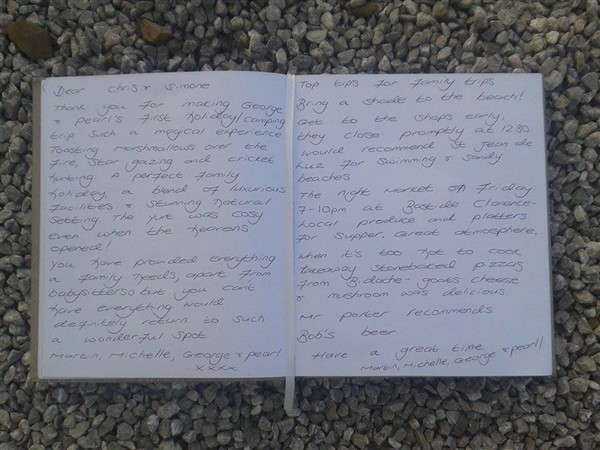 Dear Chris & Simone
Thank you for making George
& pearl's first holiday/camping
trip such a magical experience
Toasting marshmallows over the
fire, star gazing and cricket
hunting A perfect family
holiday, a blend of luxurious
facilities & stunning natural
setting. The yurt was cosy
even when the heavens
opened!
You have provided everything
a family needs, apart from
babysitters but you can't
have everything would
definitely return to such
a wonderful spot
Martin, Michelle, George & pearl
xxxx
Top tips for family trips
Bring a shade to the beach!
Get to the shops early,
they close promptly at 12.30
would recommend St Jean de
Luz for swimming & sandy
beaches
The night market of Friday
7-10pm at Bastide Clarence-
local produce and platters
for supper. Great atmosphere.
when it's too hot to cook
takeaway stonebaked pizzas
from Bidache - goats cheese
& mushroom was delicious
Mr porter recommends
Bob's beer
Have a great time
Martin, Michelle, George & pearl